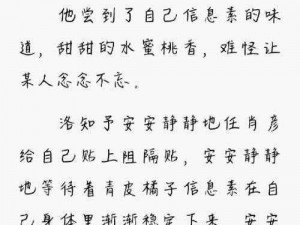 他尝到了自己信息素的味
道，甜甜的水蜜桃香，难怪让
某人念念不忘。
洛知予安安静静地任肖彦
给自己贴上阻隔贴，安安静静
地等待着青皮橘子信息素在自
己身体里渐渐稳定下来，安安